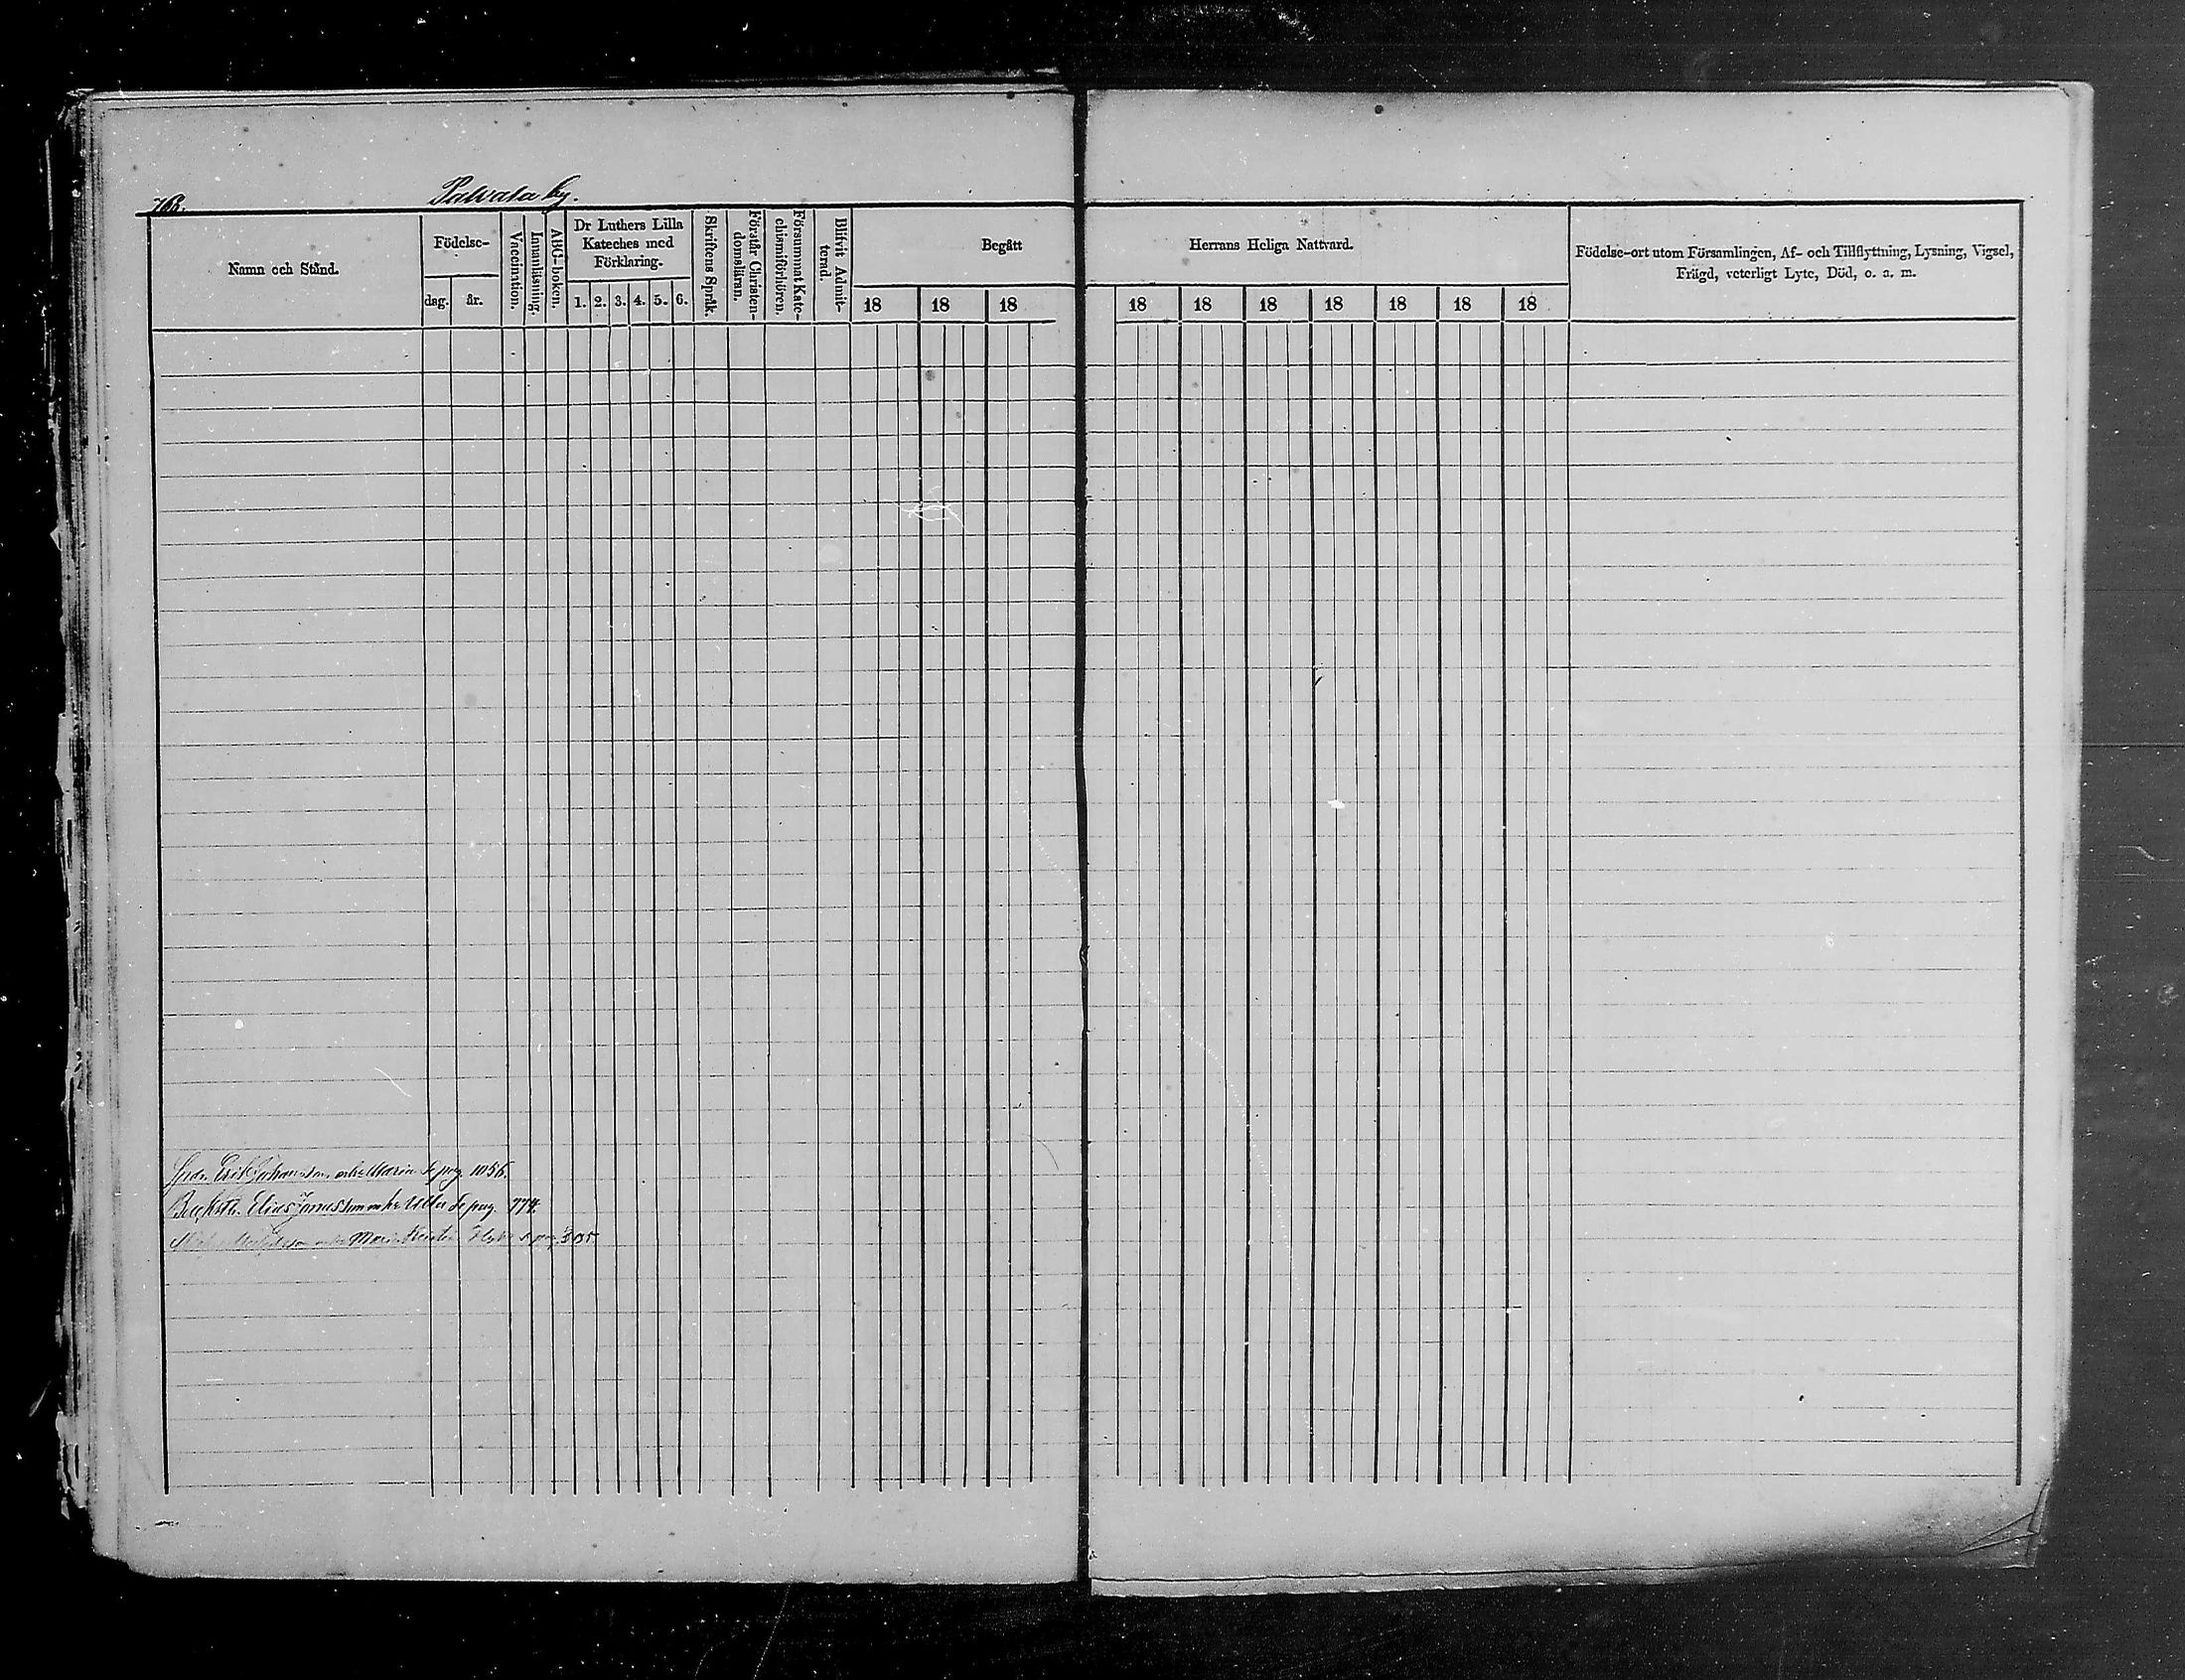 Palvala by.
Namn och Stånd.
Födelse-
dag.
år.
Vaccination.
Innanläsning.
ABC-boken.
Dr Luthers Lilla
Kateches med
Förklaring.
1. 2. 3. 4. 5. 6.
Skriftens Språk.
Förstår Christen-
domsläran.
Försummat Kate-
chismiförhören.
Blifvit Admit-
terad.
Begått
Herrans Heliga Nattvard.
18 18 18 18 18 18 18 18 18 18
Födelse-ort utom Församlingen, Af- och Tillflyttning, Lysning, Vigsel,
Frägd, veterligt Lyte, Död, o. s. m.
Erik Johansson enka Maria Se pag. 1056.
Elias Jonasson enka Ulla Se pag. 774.
enka Maria